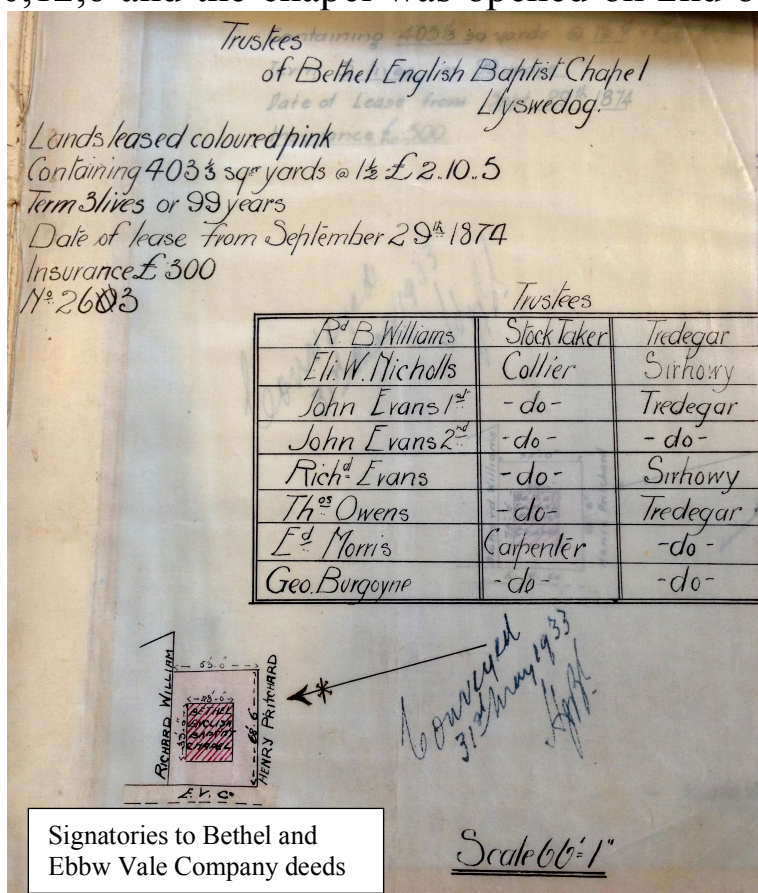 0,12,0 and the chapel was opened on 2nd
Trustees
of Bethel English Baptist Chapel
Llyswedog.
Date of Lease from 1874
£ 300
Lands leased coloured pink
Containing 403 ⅓ sqr yards @ 1½ £ 2..10..5
Term 3 lives or 99 years
Date of lease from September 29th 1874
Insurance £ 300
No 2603
Trustees
Rd B. Williams Stock Taker Tredegar
Eli. W. Nicholls Collier Sirhowy
John Evans 1st -do- Tredegar
John Evans 2nd -do- -do-
Richd Evans -do- Sirhowy
Thos Owens -do- Tredegar
Ed Morris Carpenter -do-
Geo. Burgoyne -do- -do-
RICHARD WILLIAM
BETHEL
ENGLISH
BAPTIST
CHAPEL
HENRY PRITCHARD
68.6
E.V. Co
Conveyed
31st May 1933
Signatories to Bethel and
Ebbw Vale Company deeds
Scale 66' = 1"